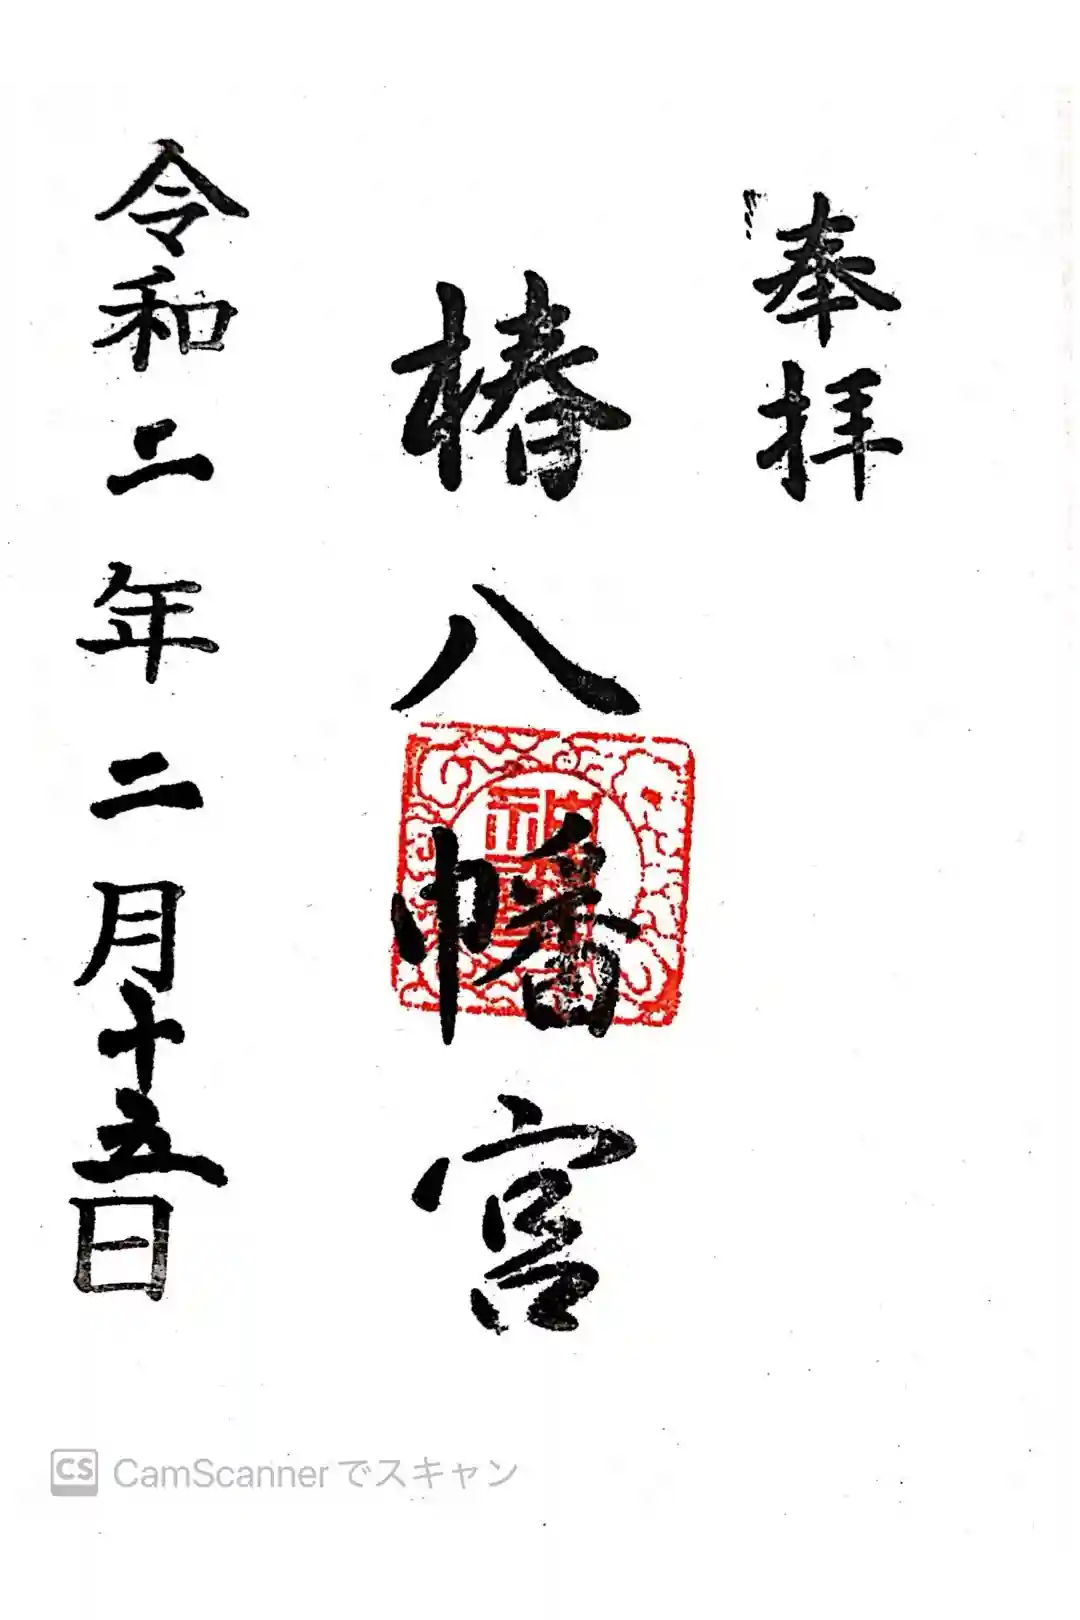 奉拝
椿八幡宮
令和二年二月十五日
CamScannerでスキャン